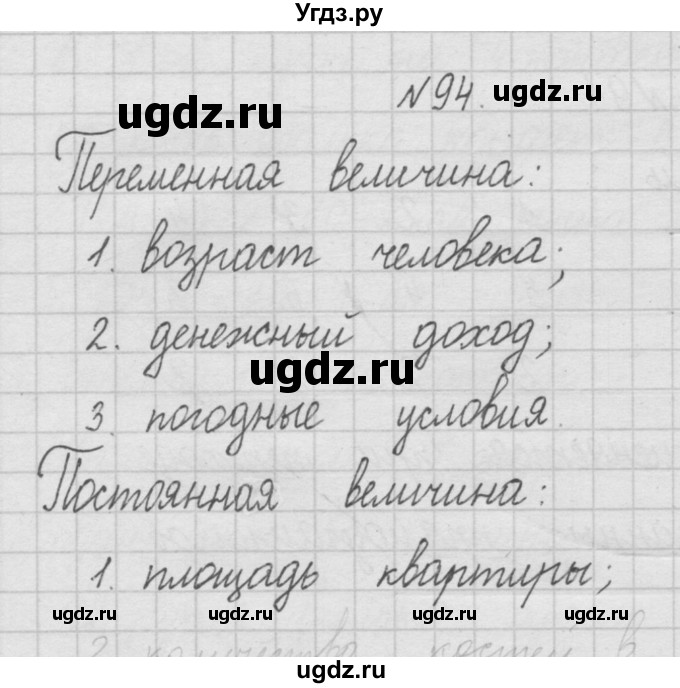 Угдз.ру
№94.
ugdz.ru
ugdz.ru
Переменная величина:
1. возраст человека;
2. денежный доход;
ugdz.ru
3. погодные условия.
Постоянная величина:
1. площадь квартиры;
ugdz.ru ugdz.ru ugdz.ru ugdz.ru
2. количество костей в
ugdz.ru